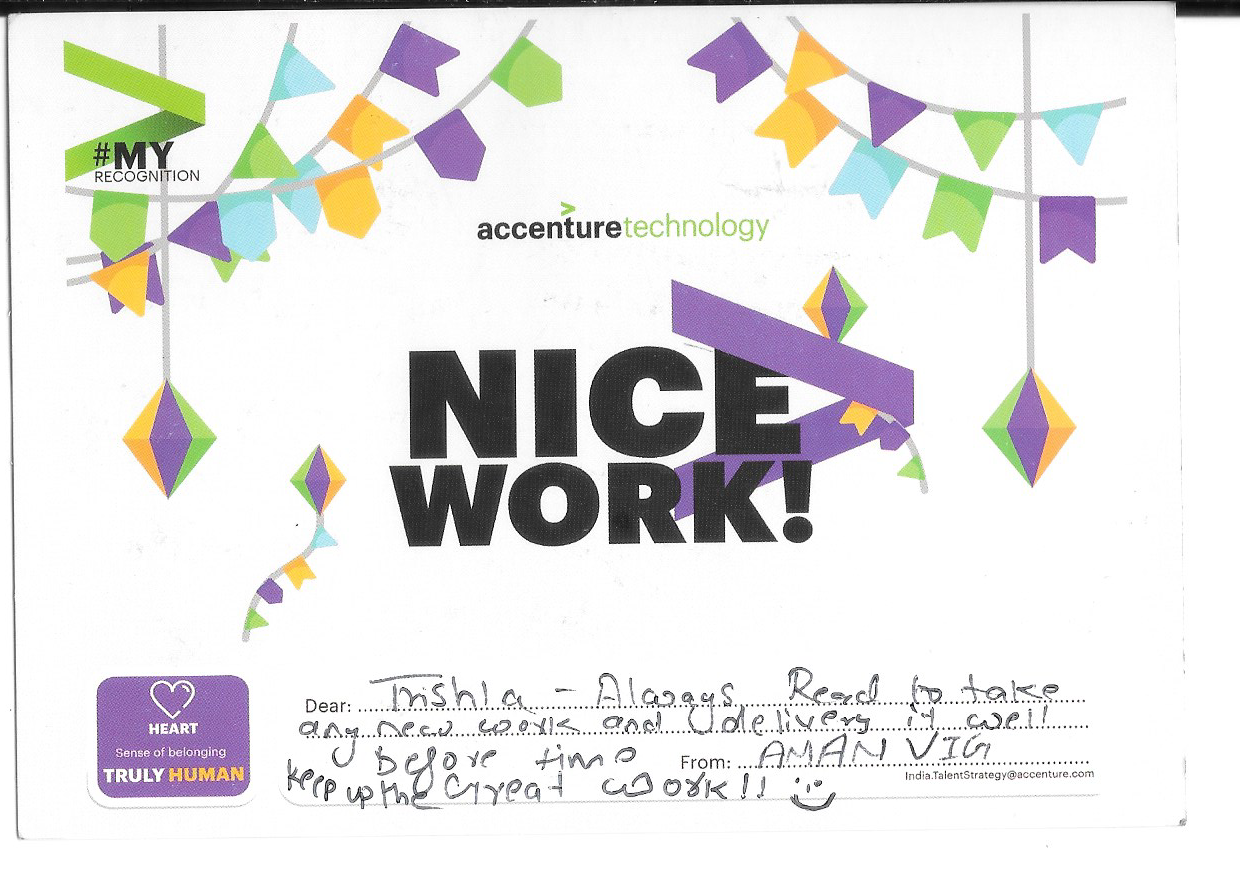 #MY
RECOGNITION
accenturetechnology
NICE
WORK!
HEART
Sense of belonging
TRULY HUMAN
Dear: Trishla - Always Read to take
any new work and delivery it well
before time From: AMAN VIG
India.TalentStrategy@accenture.com
keep up the Great work!!